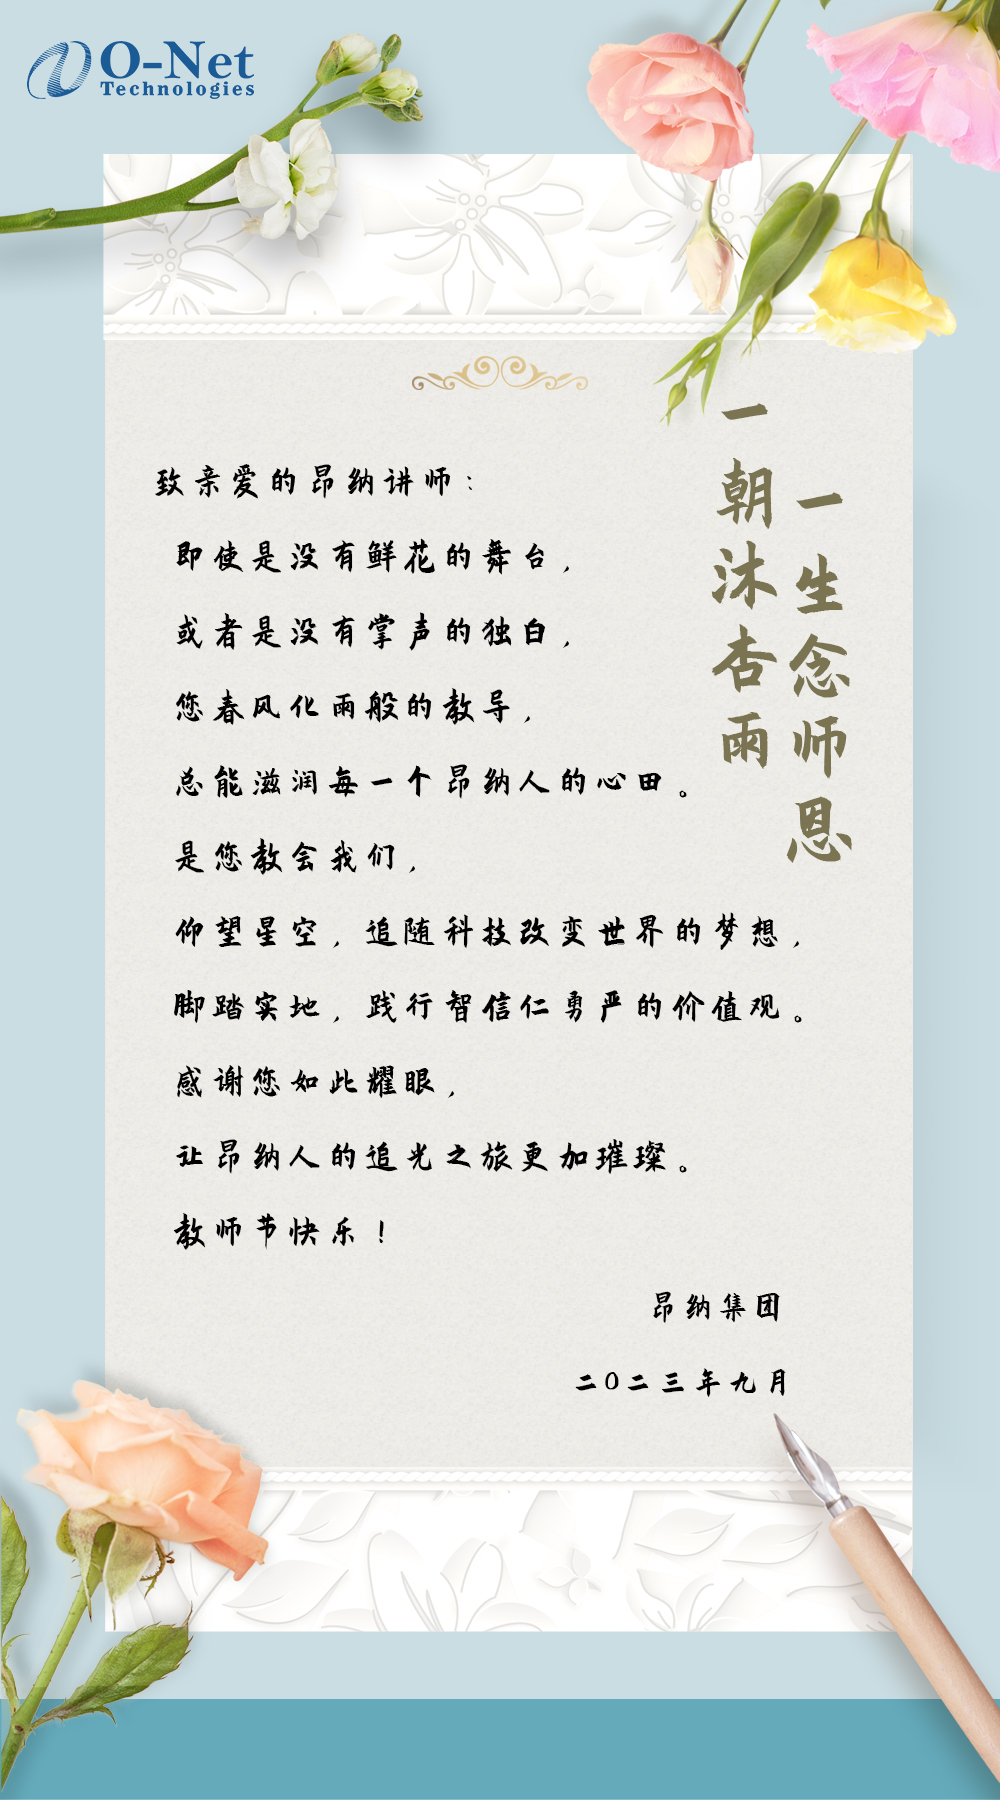 O-Net
Technologies
一朝沐杏雨
一生念师恩
致亲爱的昂纳讲师：
即使是没有鲜花的舞台，
或者是没有掌声的独白，
您春风化雨般的教导，
总能滋润每一个昂纳人的心田。
是您教会我们，
仰望星空，追随科技改变世界的梦想，
脚踏实地，践行智信仁勇严的价值观。
感谢您如此耀眼，
让昂纳人的追光之旅更加璀璨。
教师节快乐！
昂纳集团
二〇二三年九月